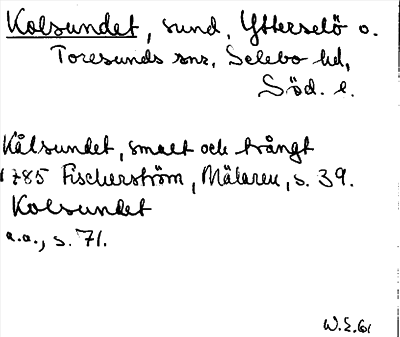 Kolsundet, sund, Ytterselö o.
Toresunds snr, Selebo hd,
Söd. l.
Kålsundet, smalt och trångt
1785 Fischerström, Mälaren, s. 39.
Kolsundet
a.a., s. 71.
W.E. 61